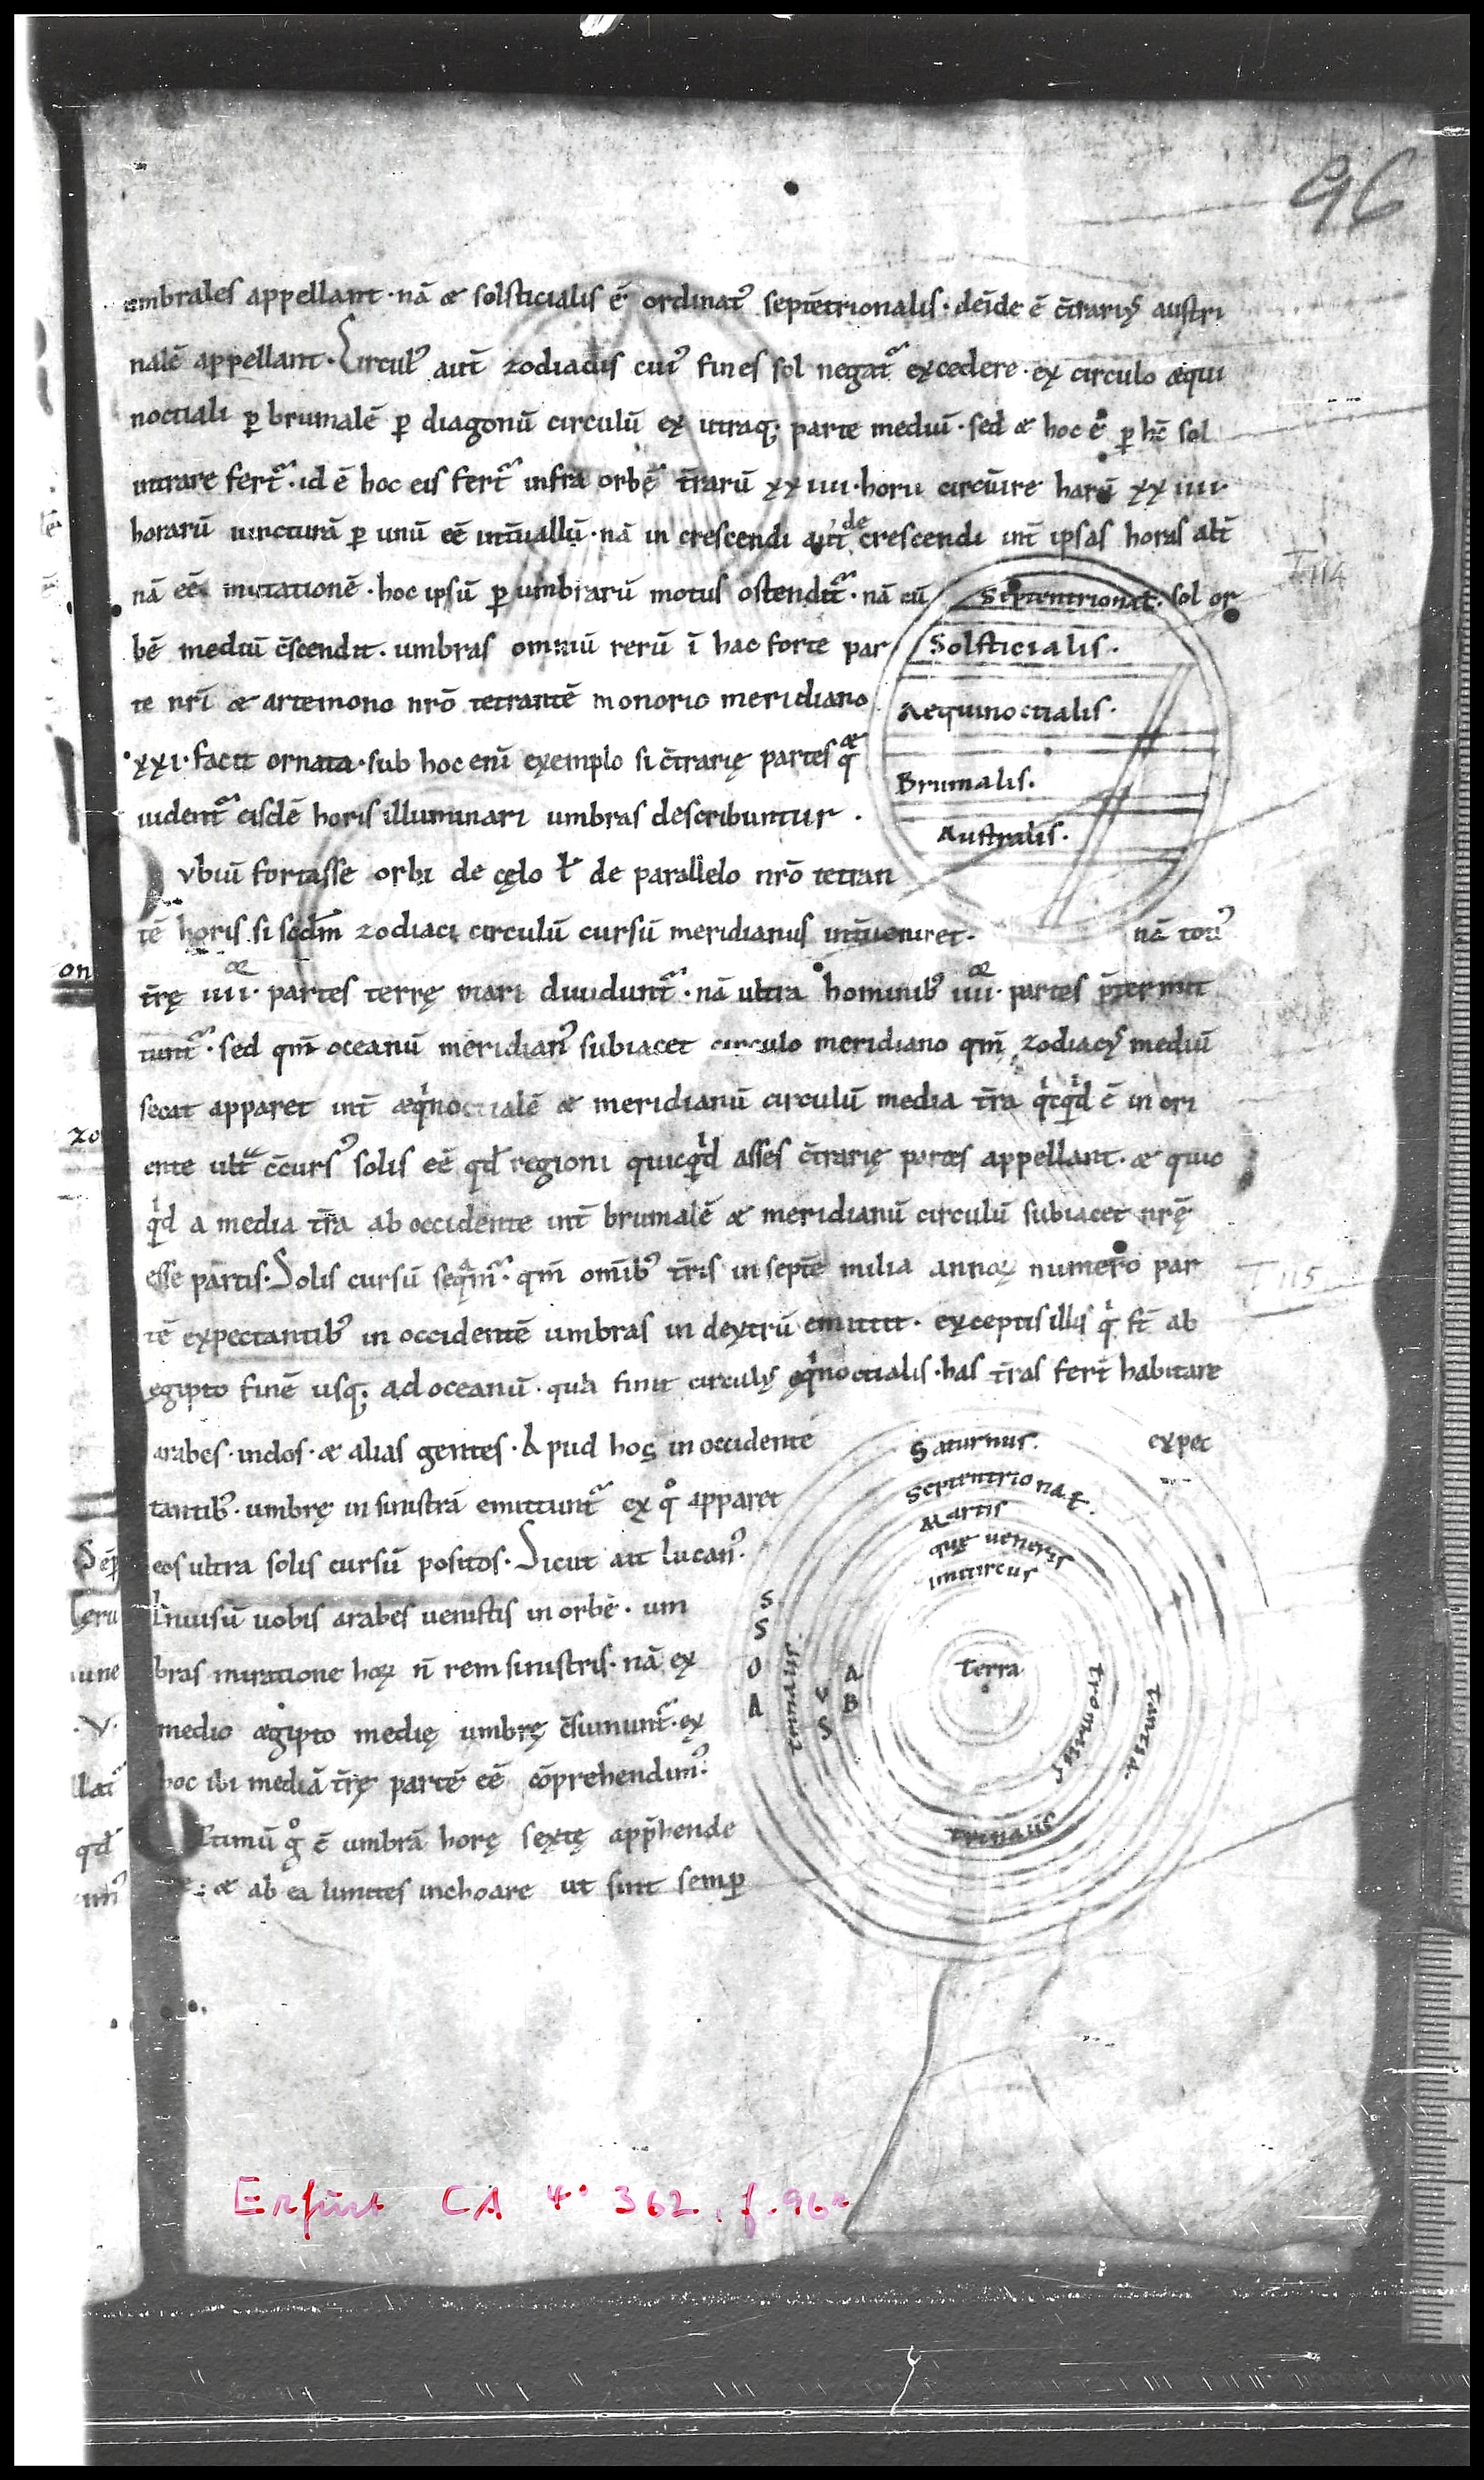 96
umbrales appellant · nā & solsticialis ē ordinat᷒ septētrionalis · deīde ē c̄trariꝰ austri
nalē appellant · Circulꝰ aut̄ zodiacus cuiꝰ fines sol negat᷒ excedere · ex circulo æqui
noctiali ꝑ brumalē ꝑ diagonū circulū ex utraq; parte mediū · sed & hoc ē ꝑ hē sol
intrare fert᷒ · id ē hoc eis fert᷒ infra orbē t̄rarū xxiiii · horis circūire harū xxiiii ·
horarū iuncturā ꝑ unū eē int̄uallū · nā in crescendi aut̄ de crescendi int̄ ipsas horas alt̄
nā eē mutationē · hoc ipsū ꝑ umbrarū motus ostendit᷒ · nā cū sol or
bē mediū c̄scendit · umbras omniū rerū ī hac forte par
te nr̄i & artemono nr̄o tetrantē monorio meridiano
xxi · facit ornata · sub hoc enī exemplo si c̄trarię partes q̄ æ
uident᷒ eisdē horis illuminari umbras describuntur ·
Septentrional ·
Solsticialis ·
Aequinoctialis ·
Brumalis ·
Australis ·
T 114
vbiū fortasse orbi de cęlo ł de parallelo nr̄o tetran
tē horis si sc̄dm zodiaci circulū cursū meridianus int̄ueniret · nā totiꝰ
t̄rę iiii · æ partes terrę mari diuidunt᷒ · nā ultra hominibꝰ iiii · æ partes p̄termit
tunt᷒ · sed qm̄ oceanū meridianꝰ subiacet circulo meridiano qm̄ zodiacꝰ mediū
secat apparet int̄ æqͥnoctialē & meridianū circulū media t̄ra qͥcqͥd ē in ori
ente ult᷒ c̄cursꝰ solis eē qd̄ regioni quicqͥd asses c̄trarię partes appellant · & quic
qͥd a media t̄ra ab occidente int̄ brumalē & meridianū circulū subiacet nr̄ę
esse partis · Solis cursū seqͣm᷒ · qm̄ om̄ibꝰ t̄ris in septē milia annoꝝ numero par
tē expectantibꝰ in occidentē umbras in dextrū emittit · exceptis illis qͥ st̄ ab
egipto finē usq; ad oceanū · qua finit circulꝰ ęqͥnoctialis · has t̄ras fert̄ habitare
arabes · indos · & alias gentes · Apud hos in occidente expec
tantibꝰ · umbrę in sinistrā emittunt᷒ ex qͦ apparet
eos ultra solis cursū positos · Sicut ait lucanꝰ ·
Inuisū uobis arabes uenistis in orbē · um
bras miratione hoꝝ n̄ rem sinistris · nā ex
medio ægipto medię umbrę c̄sumunt᷒ · ex
hoc ibi mediā t̄rę partē eē cōprehendimꝰ ·
timū gͦ ē umbrā horę sextę app̄hende
re · & ab ea limites inchoare ut sint semꝑ
T 115
Saturnus ·
Septentrional ·
Martis
quę ueneris
Terra
Erfurt CA 4° 362, f. 96r